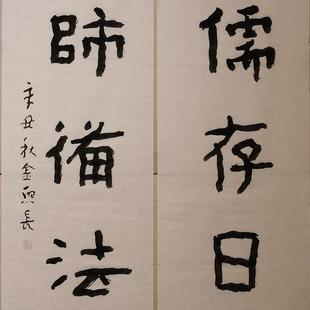 儒存日
師備法
辛丑秋金興長